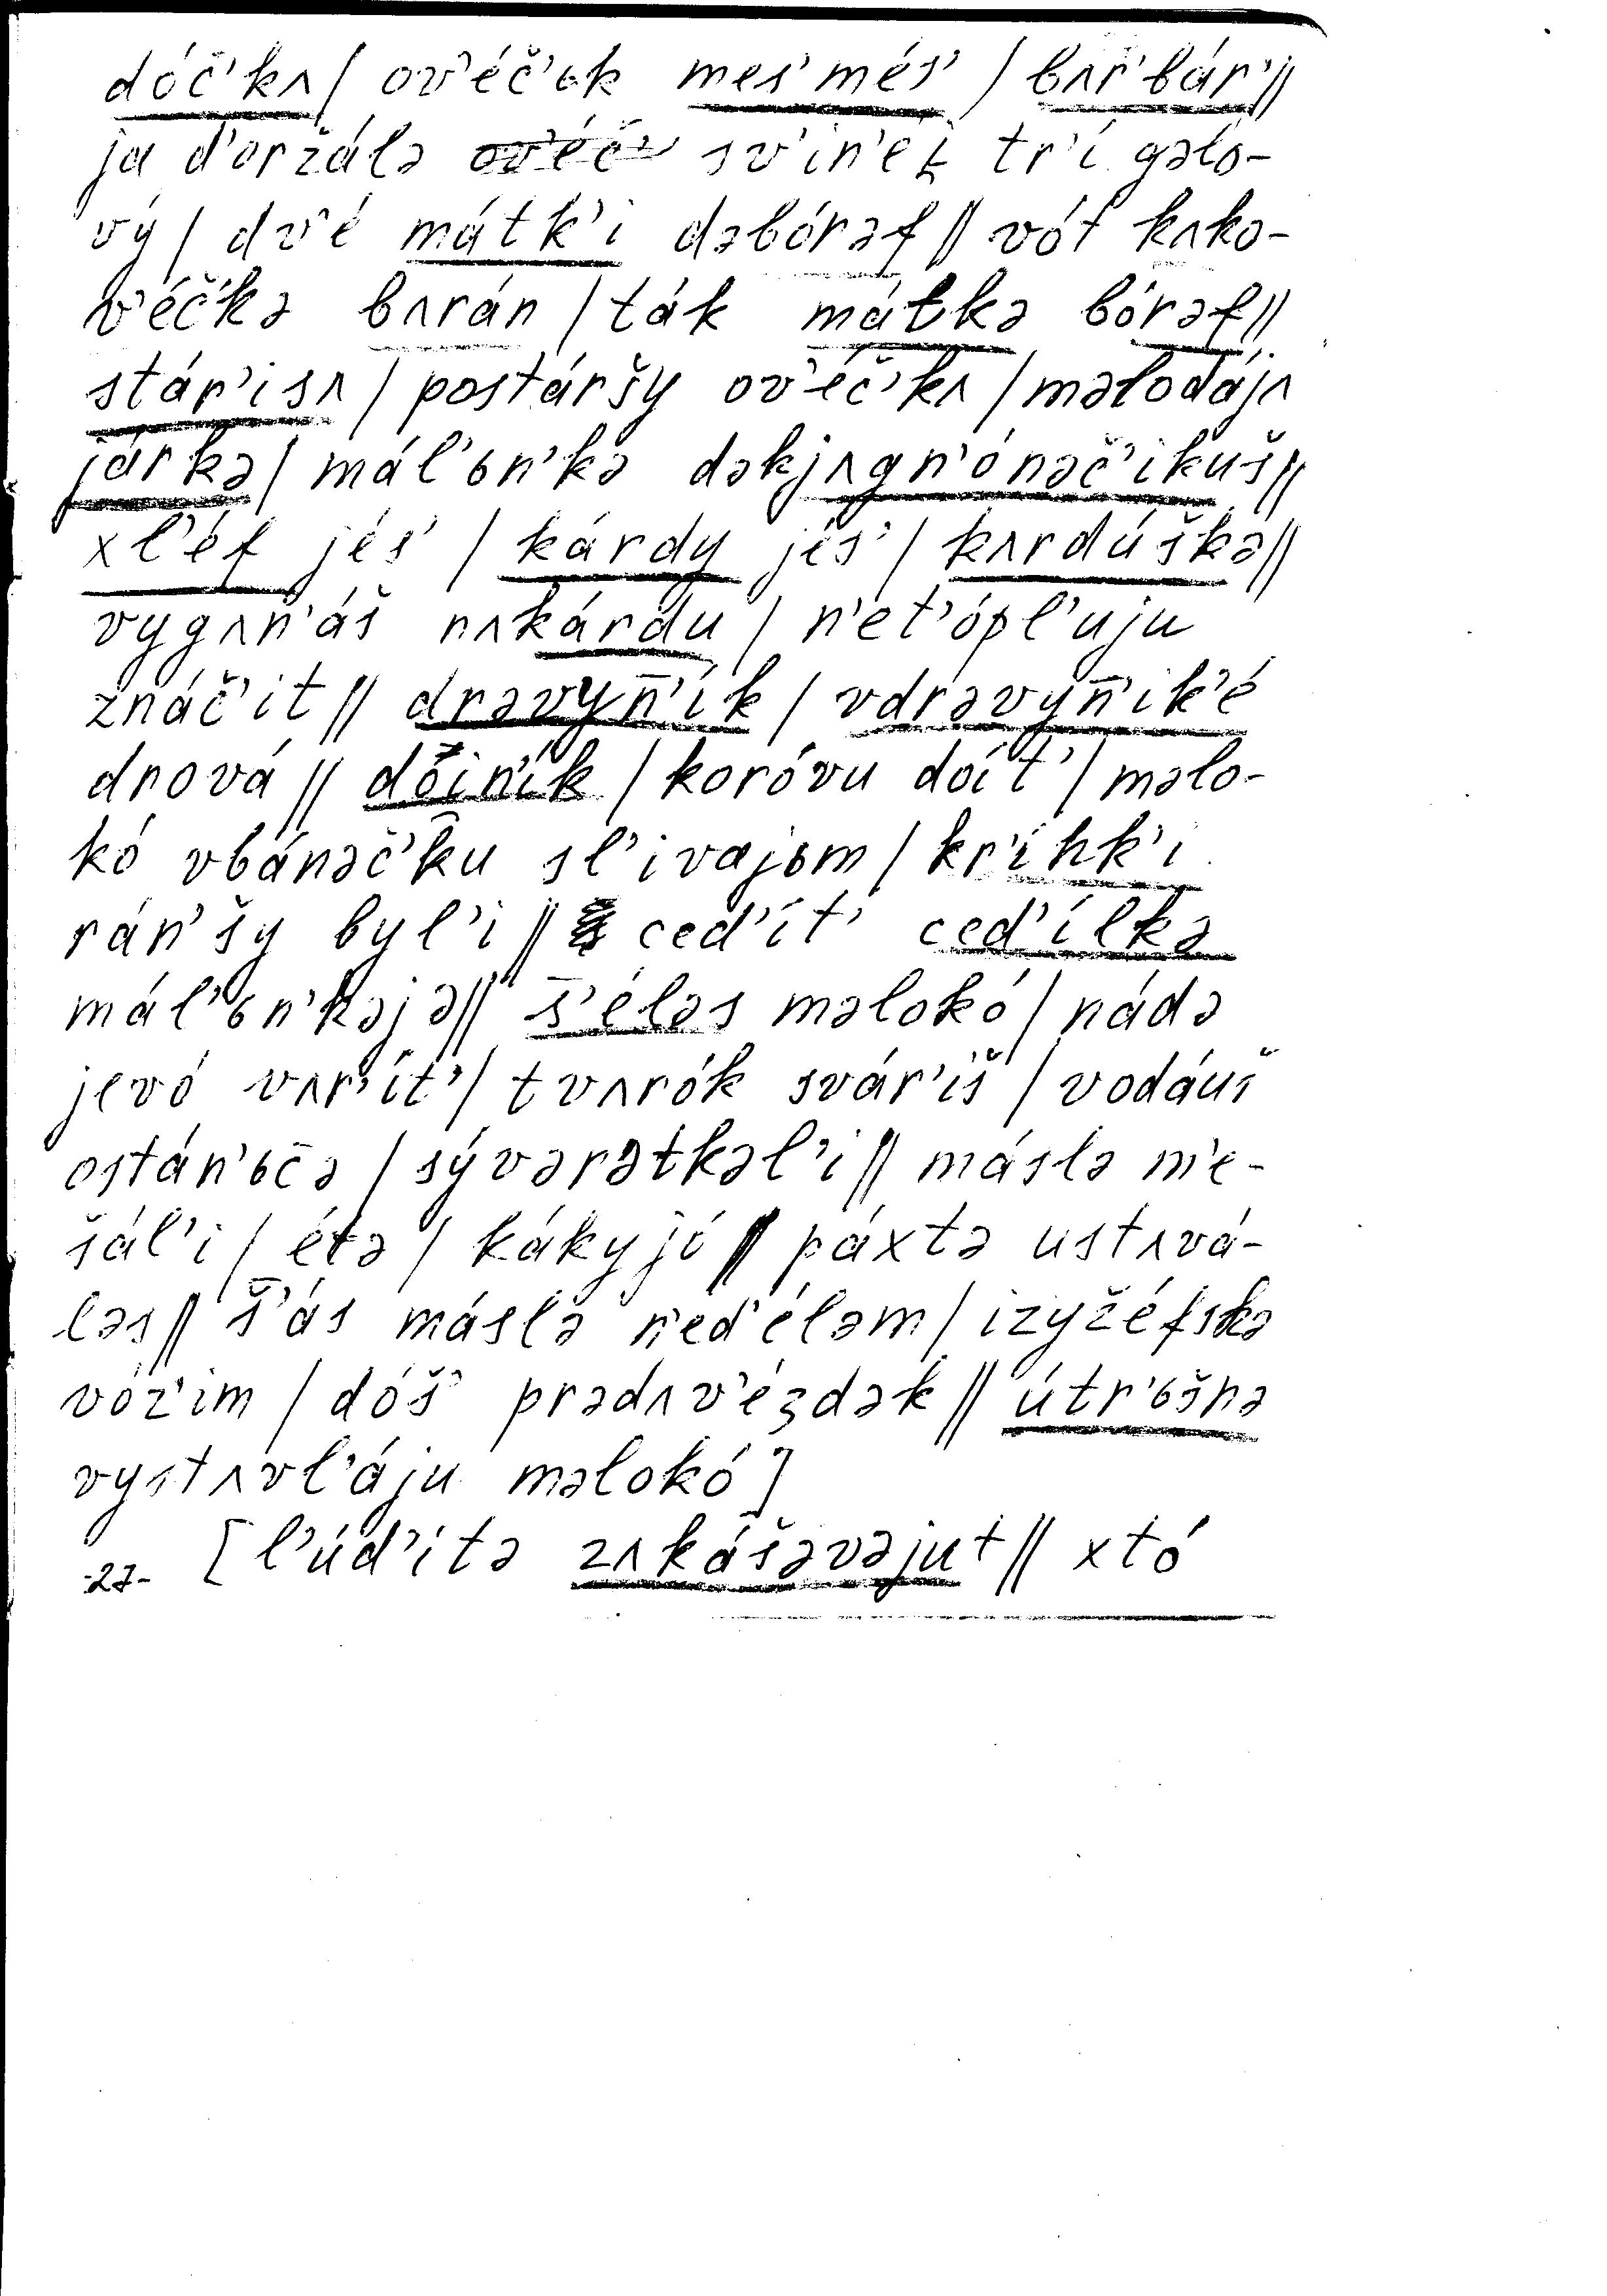 dóč’kʌ / ov’éč’ьk mes’més’ / bʌr’bár’ //
ja d’oržálə sv’in’éj tr’í gəlo-
vý / dv’é mátk’i dəbórəf // vót kʌko-
v’éčkə bʌrán / ták mátkə bórəf //
stár’isʌ / postáršy ov’éč’kʌ / məlodájʌ
járkə / mál’ьn’kə dəkjʌgn’ónəč’ikuš //
xl’éf jés’ / kárdy jés’ / kʌrdúškə //
vygʌn’áš nʌkárdu / n’et’ópl’uju
znáč’it // drəvyn̄’ík / vdrəvyn̄’ik’é
drová // doin’ík / koróvu doít’ / məlo-
kó vbánəč’ku sl’ivajьm / kr’ínk’i
rán’šy byl’i // ced’ít’ ced’ílkə
mál’ьn’kəjə // š̄’éləs məlokó / nádə
jevó vʌr’ít’ / tvʌrók svár’iš / vodáuš
ostán’ьc̄ə / sývərətkəl’i // máslə m’e-
šál’i / étə / kákyjó // páxtə ustʌvá-
ləs // š̄’ás máslə n’ed’éləm / izyžéfskə
vóz’im / dóš’ prədʌv’ézdək // útr’ьšnə
vystʌvl’áju məlokó]
-27- [l’úd’itə zʌkášəvəjut // xtó